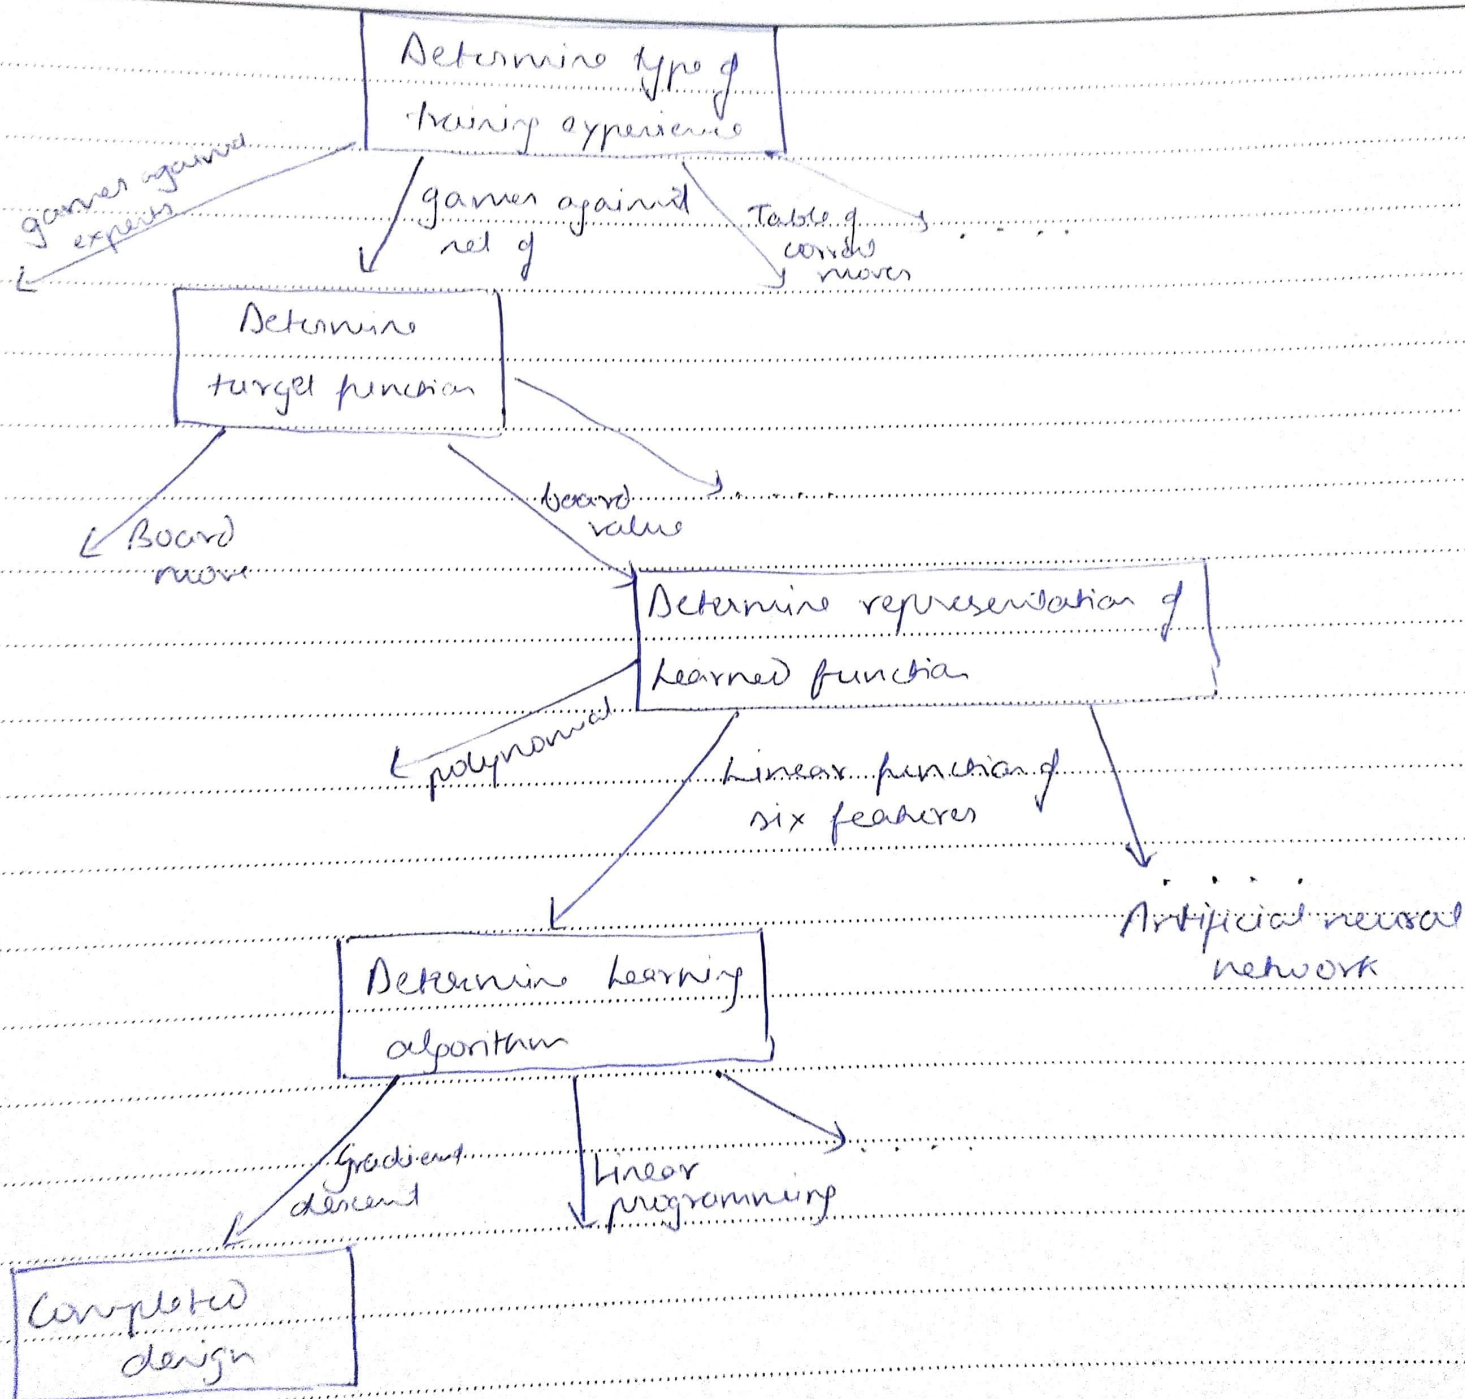 Determine type of
training experience
games against
experts
games against
Table of
correct
moves
. . . .
Determine
target function
. . . . .
board
value
Board
move
Determine representation of
Learned function
polynomial
Linear function of
six features
. . . .
Artificial neural
network
Determine Learning
algorithm
Gradient
descent
Linear
programming
. . . . .
Completed
design